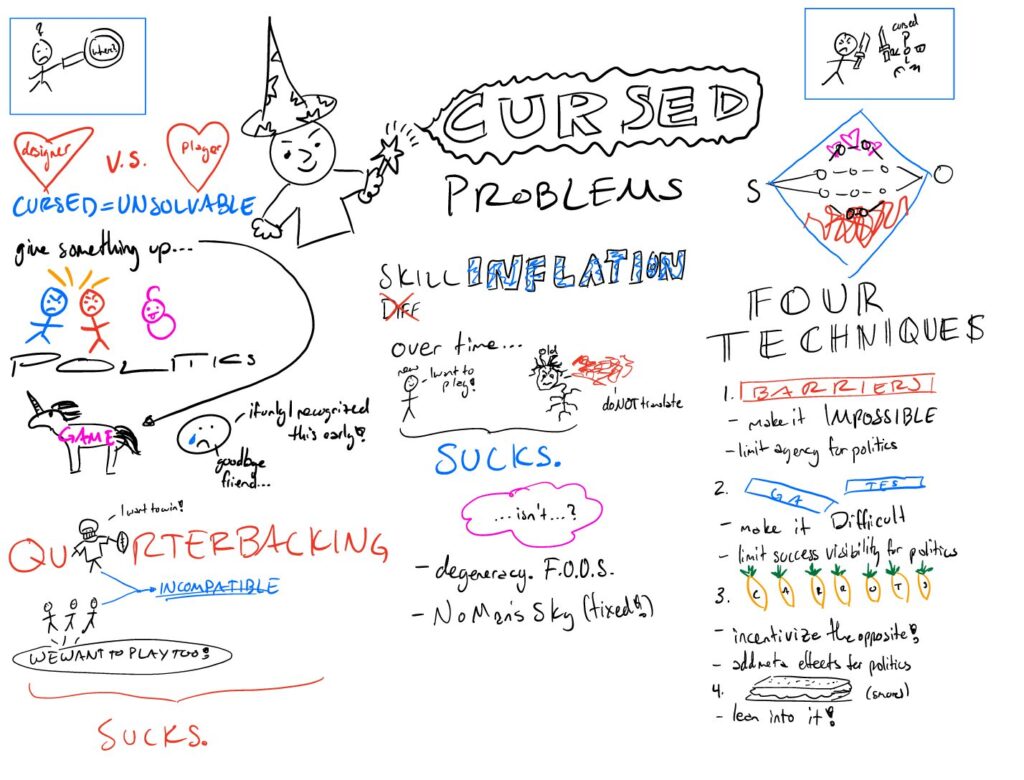 ?
where?
CURSED
PROBLEMS
designer
v.s.
player
CURSED = UNSOLVABLE
give something up...
POLITICS
GAME
if only I recognized
this early!
goodbye
friend...
I want to win!
QUARTERBACKING
INCOMPATIBLE
WE WANT TO PLAY TOO!
SUCKS.
SKILL INFLATION
DIFF
over time...
new
I want to
play!
old
do NOT translate
SUCKS.
...isn't...?
- degeneracy. F.O.O.S.
- No Man's Sky (fixed!)
cursed
P
S
O
FOUR
TECHNIQUES
1. BARRIERS
- make it IMPOSSIBLE
- limit agency for politics
2. GATES
- make it Difficult
- limit success visibility for politics
3. CARROTS
- incentivize the opposite!
- add meta effects for politics
4. (smores)
- lean into it!